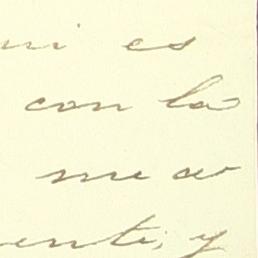 mi es
con la
me a
ente, y